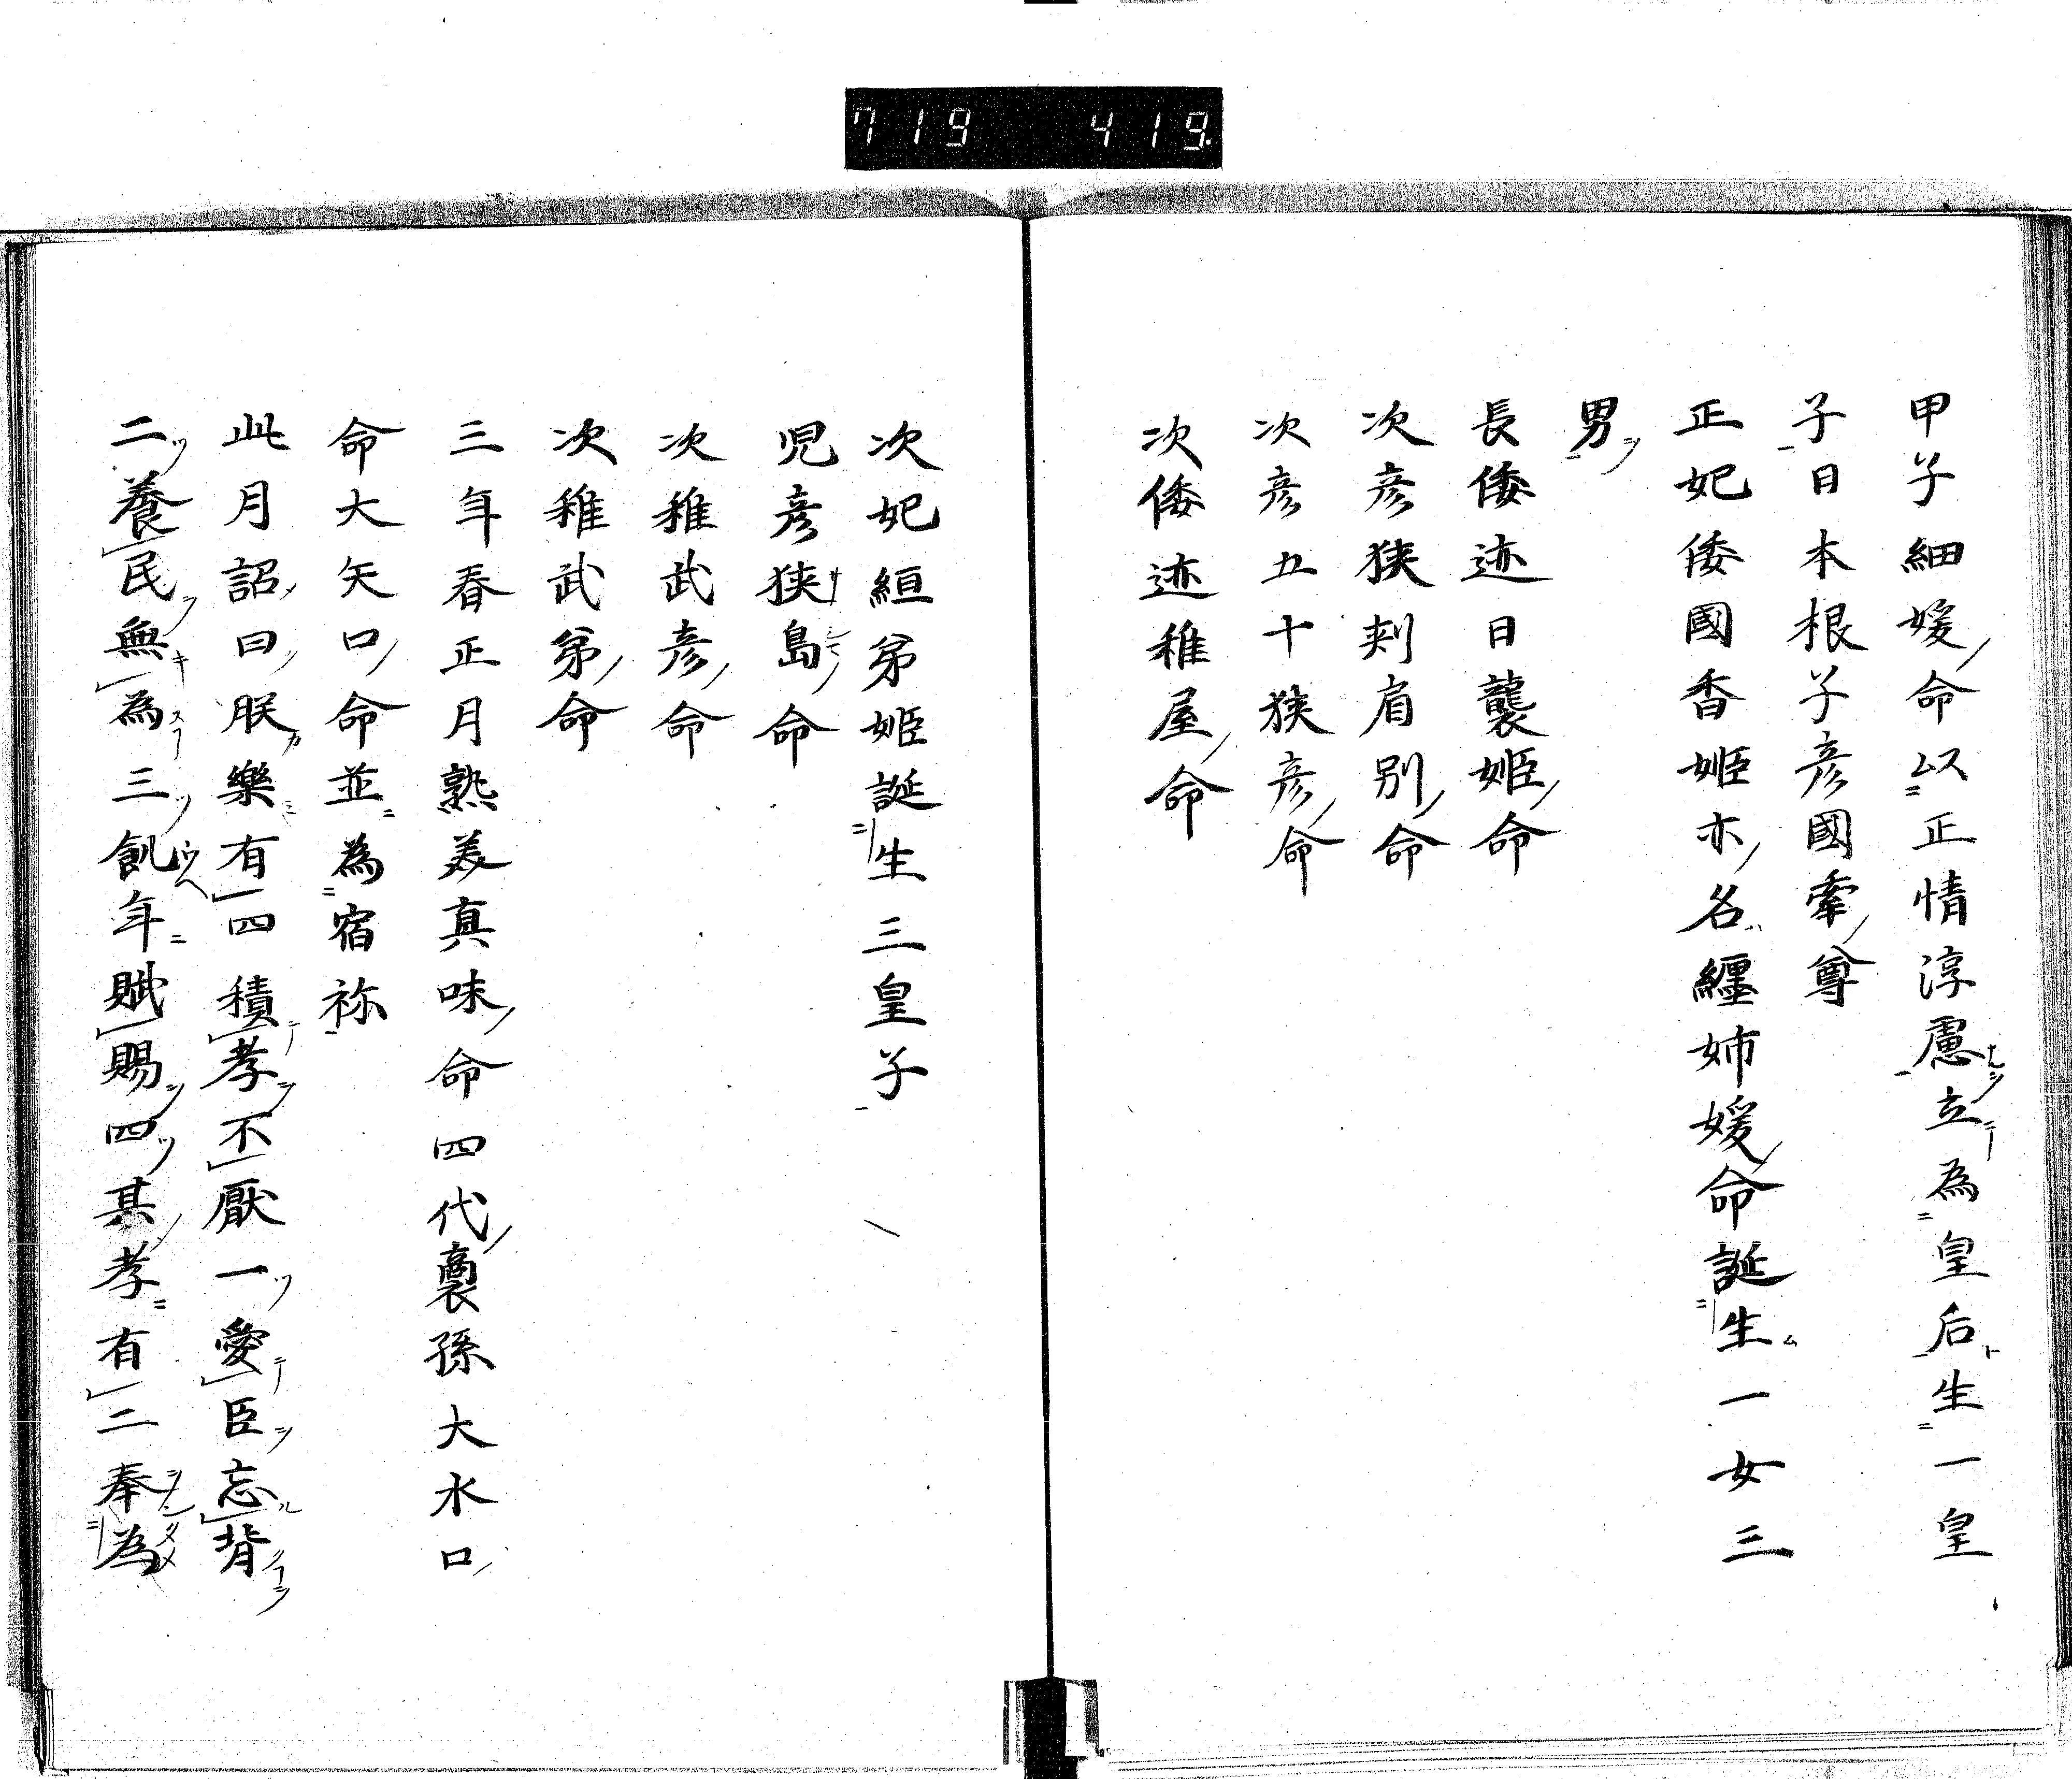 719 419.
甲子細媛命以正情淳慮立為皇后生一皇
子日本根子彦國牽尊
正妃倭國香姬亦名纏姉媛命誕生一女三
男
長倭迹日襲姬命
次彦狭刾肩別命
次彦五十狭彦命
次倭迹稚屋命
次妃絙弟姬誕生三皇子
児彦狭島命
次稚武彦命
次稚武弟命
三年春正月熟美真味命四代裔孫大水口
命大矢口命並為宿祢
此月詔曰朕樂有四積孝不厭一愛臣忘背
二養民無為三飢年賦賜四其孝有二奉為